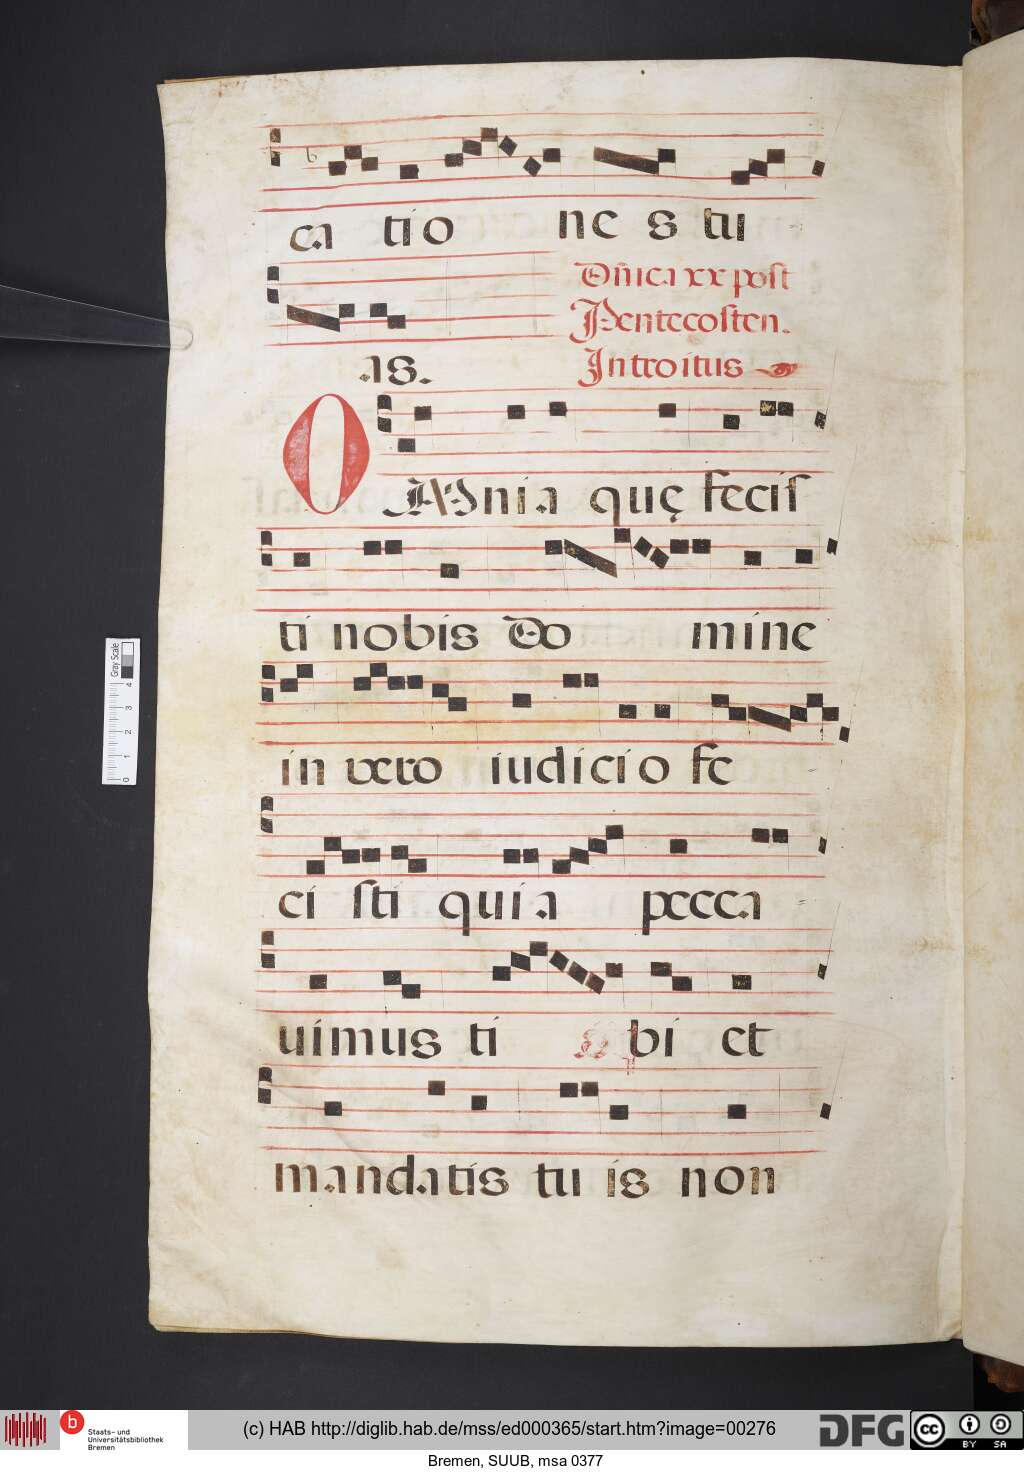 ca tio ne s tu
as.
Dñica xx post
Pentecosten.
Introitus
OMnia quę fecis
ti nobis Do mine
in vero iudicio fe
ci sti quia pecca
uimus ti bi et
mandatis tu is non
Gray Scale
4
3
2
1
0
b Staats- und
Universitätsbibliothek
Bremen
(c) HAB http://diglib.hab.de/mss/ed000365/start.htm?image=00276
DFG
cc BY SA
Bremen, SUUB, msa 0377